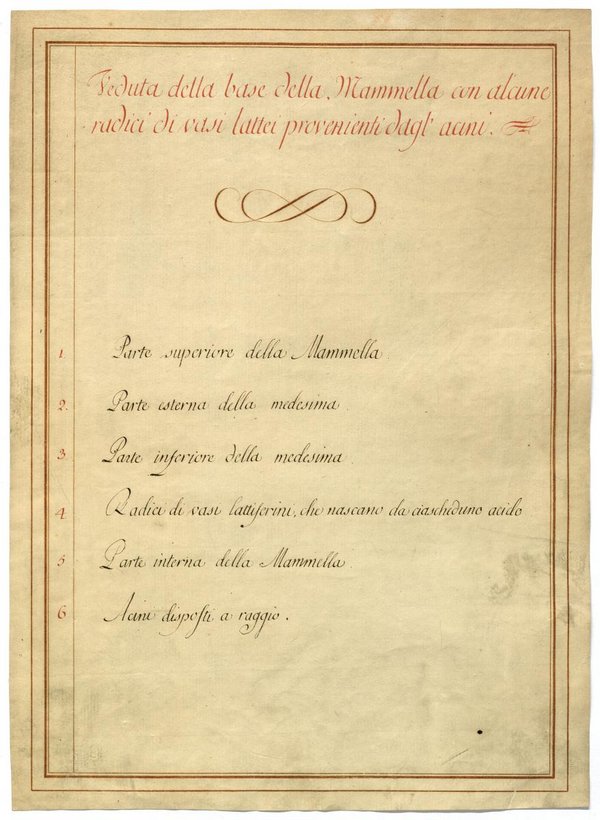 Veduta della base della Mammella con alcune
radici di vasi lattei provenienti dagl' acini.
1. Parte superiore della Mammella.
2. Parte esterna della medesima.
3. Parte inferiore della medesima.
4 Radici di vasi lattiferini, che nascano da ciascheduno acido
5 Parte interna della Mammella.
6 Acini disposti a raggio.